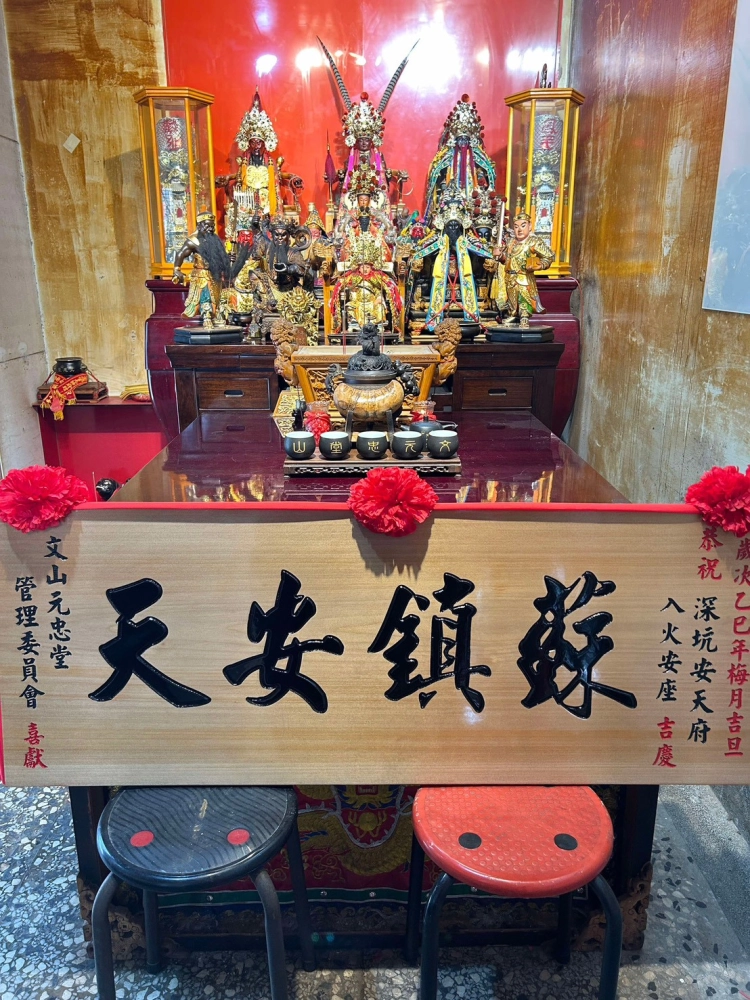 歲次乙巳年梅月吉旦
恭祝
深坑安天府
入火安座 吉慶
蘇鎮安天
文山元忠堂
管理委員會 喜獻
文元忠堂山